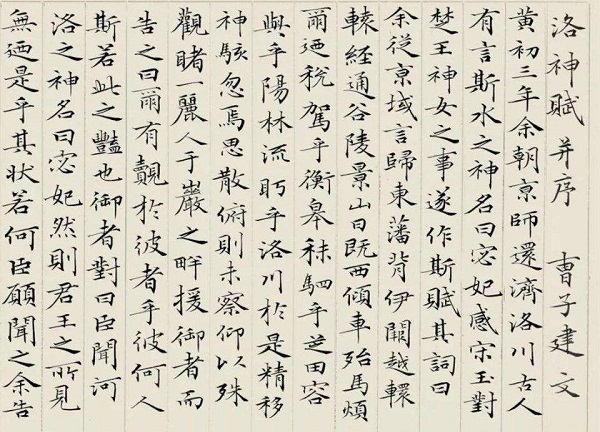 洛神賦 并序 曹子建文
黃初三年余朝京師還濟洛川古人
有言斯水之神名曰宓妃感宋玉對
楚王神女之事遂作斯賦其詞曰
余從京域言歸東藩背伊闕越轘
轅經通谷陵景山日既西傾車殆馬煩
爾迺稅駕乎衡皋秣駟乎芝田容
與乎陽林流眄乎洛川於是精移
神駭忽焉思散俯則未察仰以殊
觀睹一麗人于巖之畔援御者而
告之曰爾有覿於彼者乎彼何人
斯若此之豔也御者對曰臣聞河
洛之神名曰宓妃然則君王之所見
無迺是乎其狀若何臣願聞之余告